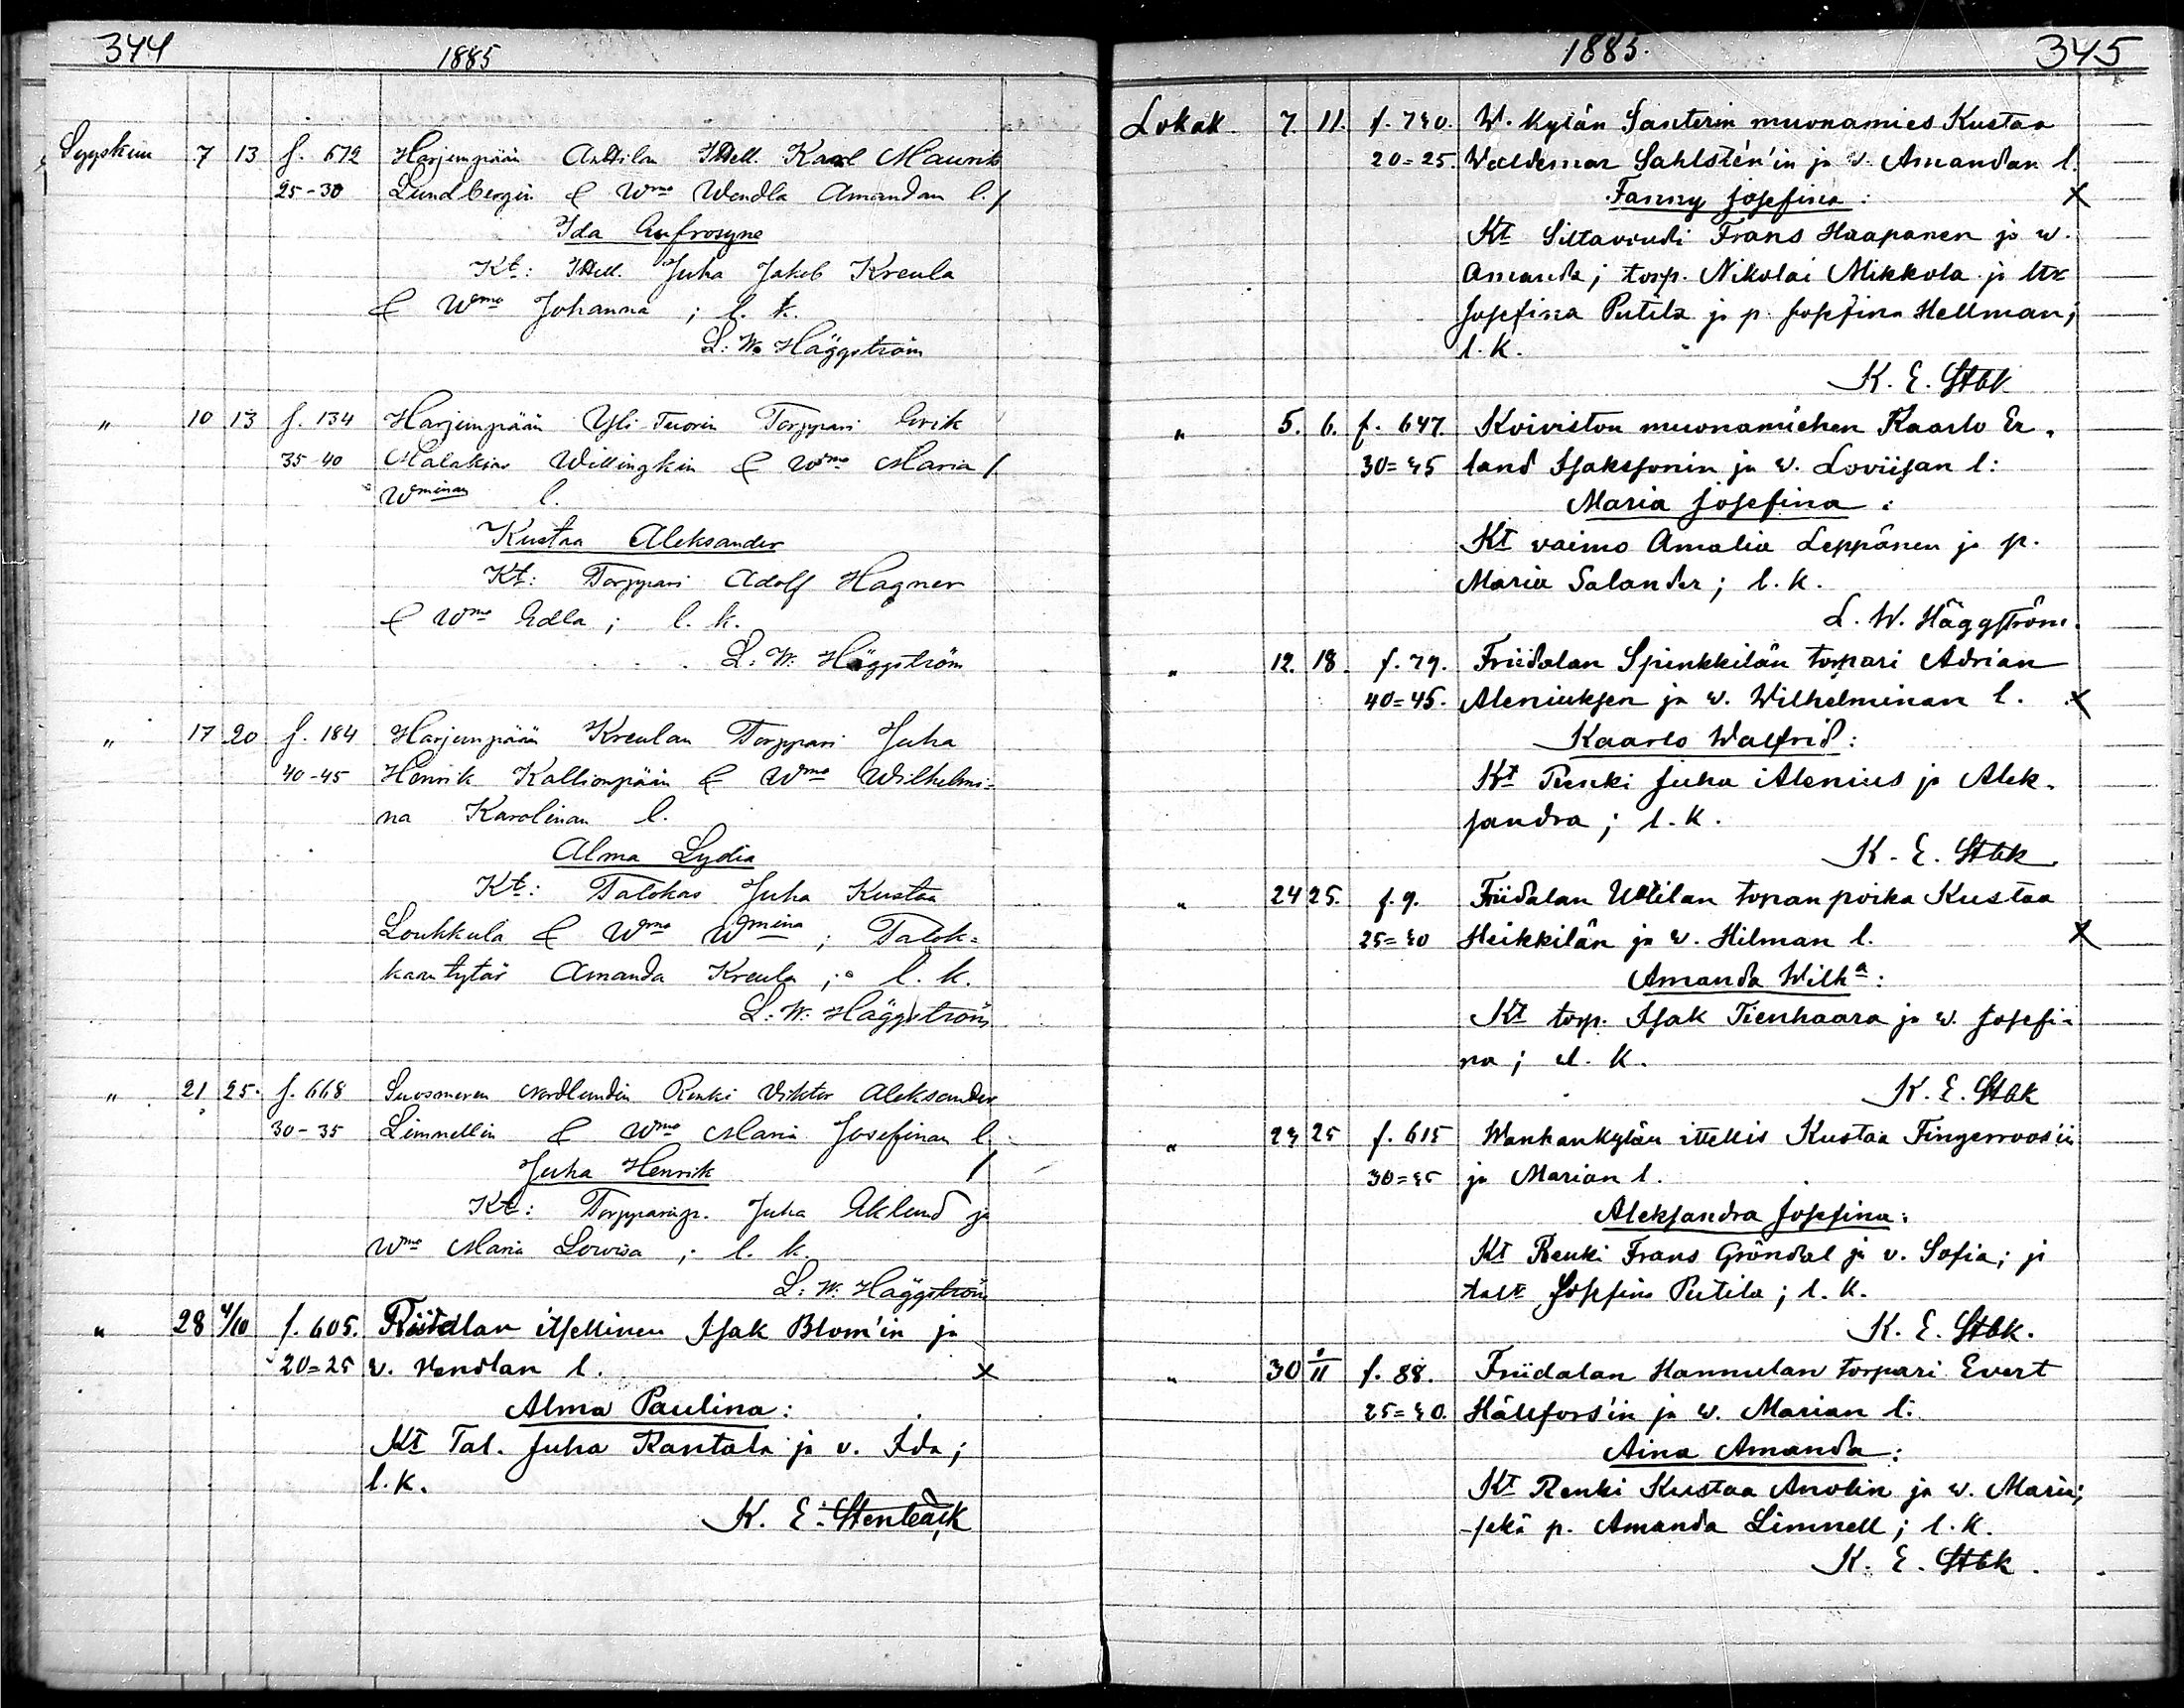 344 1885
Syyskuu 7 13 f. 672 Harjunpään Anttilan Itsell. Karl Maurits
25-30 Lundbergin & Wmo Wendla Amandan l.
Ida Eufrosyne
Kt: Itsell. Juha Jakob Kreula
& Wmo Johanna ; l. k.
L. W. Häggström
" 10 13 f. 134 Harjunpään Yli Tuorin Torppari Erik
35-40 Malakias Willingkin & Wmo Maria
Wminan l.
Kustaa Aleksander
Kt: Torppari Adolf Hagner
& Wmo Edla ; l. k.
L. W. Häggström
" 17 20 f. 184 Harjunpään Kreulan Torppari Juha
40-45 Henrik Kallionpään & Wmo Wilhelmi-
na Karolinan l.
Alma Lydia
Kt: Talokas Juha Kustaa
Louhkula & Wmo Wmina ; Talok-
kaan tytär Amanda Kreula ; l. k.
L. W. Häggström
" 21 25. f. 668 Suosmeren Nordlundin Renki Viktor Aleksander
30-35 Limnellin & Wmo Maria Josefinan l.
Juha Henrik
Kt: Torpparinp. Juha Eklund ja
Wmo Maria Lovvisa ; l. k.
L. W. Häggström
" 28 4/10 f. 605. Friidlan itsellinen Isak Blom'in ja
20=25 v. Vendlan l. x
Alma Paulina:
Kt Tal. Juha Rantala ja v. Ida ;
l. k.
K. E. Stenbäck
1885. 345
Lokak. 7. 11. f. 740. W. kylän Santerin muonamies Kustaa
20=25. Waldemar Sahlstén'in ja v. Amandan l.
Fanny Josefina: x
Kt Siltavouti Frans Haapanen ja w.
Amanda ; torp. Nikolai Mikkola ja ttr
Josefina Putila ja p. Josefina Hellman ;
l. k.
K. E. Stbk
" 5. 6. f. 647. Koiviston muonamiehen Kaarlo Er-
30=45 land Isakssonin ja w. Loviisan l:
Maria Josefina :
Kt vaimo Amalia Leppänen ja p.
Maria Salander ; l. k.
L. W. Häggström.
" 12. 18. f. 79. Friidalan Spinkkilän torpari Adrian
40=45. Aleniuksen ja w. Wilhelminan l. x
Kaarlo Walfrid:
Kt Renki Juha Alenius ja Alek-
sandra ; l. k.
K. E. Stbk
" 24 25. f. 9. Friidalan Uttilan topan poika Kustaa
25=40 Heikkilän ja w. Hilman l. x
Amanda Wilha:
Kt torp. Isak Tienhaara ja w. Josefi-
na ; l. k.
K. E. Stbk
" 23 25 f. 615 Wanhankylän ittellis Kustaa Fingerroos'in
30=45 ja Marian l.
Aleksandra Josefina:
Kt Renki Frans Gröndal ja v. Sofia ; ja
Josefina Putila ; l. k.
K. E. Stbk.
" 30 1/11 f. 88. Friidalan Hannulan torpari Evert
25=40. Hällfors'in ja w. Marian l.
Aina Amanda:
Kt Renki Kustaa Anolin ja w. Maria;
sekä p. Amanda Limnell ; l. k.
K. E. Stbk.